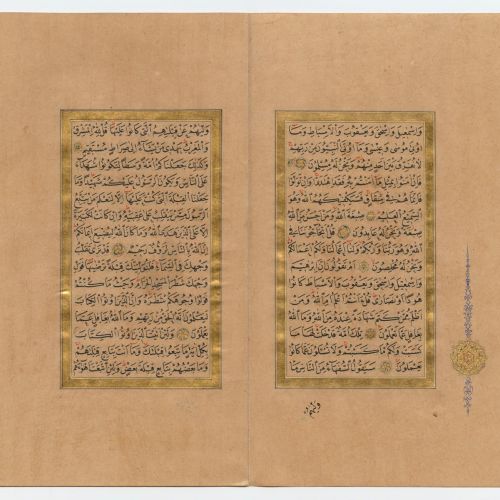 وَاِسْمٰعِيلَ وَاِسْحٰقَ وَيَعْقُوبَ وَالْاَسْبَاطِ وَمَا
اُوتِىَ مُوسٰى وَعِيسٰى وَمَا اُوتِىَ النَّبِيُّونَ مِنْ رَبِّهِمْ
لَا نُفَرِّقُ بَيْنَ اَحَدٍ مِنْهُمْ وَنَحْنُ لَهُ مُسْلِمُونَ
فَاِنْ اٰمَنُوا بِمِثْلِ مَا اٰمَنْتُمْ بِهِ فَقَدِ اهْتَدَوْا وَاِنْ تَوَلَّوْا
فَاِنَّمَا هُمْ فِى شِقَاقٍ فَسَيَكْفِيكَهُمُ اللّٰهُ وَهُوَ
السَّمِيعُ الْعَلِيمُ صِبْغَةَ اللّٰهِ وَمَنْ اَحْسَنُ مِنَ اللّٰهِ
صِبْغَةً وَنَحْنُ لَهُ عَابِدُونَ قُلْ اَتُحَاجُّونَنَا فِى اللّٰهِ
وَهُوَ رَبُّنَا وَرَبُّكُمْ وَلَنَا اَعْمَالُنَا وَلَكُمْ اَعْمَالُكُمْ
وَنَحْنُ لَهُ مُخْلِصُونَ اَمْ تَقُولُونَ اِنَّ اِبْرٰهِيمَ
وَاِسْمٰعِيلَ وَاِسْحٰقَ وَيَعْقُوبَ وَالْاَسْبَاطَ كَانُوا
هُودًا اَوْ نَصَارٰى قُلْ ءَاَنْتُمْ اَعْلَمُ اَمِ اللّٰهُ وَمَنْ
اَظْلَمُ مِمَّنْ كَتَمَ شَهَادَةً عِنْدَهُ مِنَ اللّٰهِ وَمَا
اللّٰهُ بِغَافِلٍ عَمَّا تَعْمَلُونَ تِلْكَ اُمَّةٌ قَدْ خَلَتْ لَهَا مَا
كَسَبَتْ وَلَكُمْ مَا كَسَبْتُمْ وَلَا تُسْئَلُونَ عَمَّا كَانُوا
يَعْمَلُونَ سَيَقُولُ السُّفَهَاءُ مِنَ النَّاسِ مَا
وليهم
وَلّٰيهُمْ عَنْ قِبْلَتِهِمُ الَّتِى كَانُوا عَلَيْهَا قُلْ لِلّٰهِ الْمَشْرِقُ
وَالْمَغْرِبُ يَهْدِى مَنْ يَشَاءُ اِلٰى صِرَاطٍ مُسْتَقِيمٍ
وَكَذٰلِكَ جَعَلْنَاكُمْ اُمَّةً وَسَطًا لِتَكُونُوا شُهَدَاءَ
عَلَى النَّاسِ وَيَكُونَ الرَّسُولُ عَلَيْكُمْ شَهِيدًا وَمَا
جَعَلْنَا الْقِبْلَةَ الَّتِى كُنْتَ عَلَيْهَا اِلَّا لِنَعْلَمَ مَنْ يَتَّبِعُ
الرَّسُولَ مِمَّنْ يَنْقَلِبُ عَلٰى عَقِبَيْهِ وَاِنْ كَانَتْ لَكَبِيرَةً
اِلَّا عَلَى الَّذِينَ هَدَى اللّٰهُ وَمَا كَانَ اللّٰهُ لِيُضِيعَ اِيمَانَكُمْ
اِنَّ اللّٰهَ بِالنَّاسِ لَرَؤُفٌ رَحِيمٌ قَدْ نَرٰى تَقَلُّبَ
وَجْهِكَ فِى السَّمَاءِ فَلَنُوَلِّيَنَّكَ قِبْلَةً تَرْضٰيهَا فَوَلِّ
وَجْهَكَ شَطْرَ الْمَسْجِدِ الْحَرَامِ وَحَيْثُ مَا كُنْتُمْ
فَوَلُّوا وُجُوهَكُمْ شَطْرَهُ وَاِنَّ الَّذِينَ اُوتُوا الْكِتَابَ
لَيَعْلَمُونَ اَنَّهُ الْحَقُّ مِنْ رَبِّهِمْ وَمَا اللّٰهُ بِغَافِلٍ عَمَّا
يَعْمَلُونَ وَلَئِنْ اَتَيْتَ الَّذِينَ اُوتُوا الْكِتَابَ
بِكُلِّ اٰيَةٍ مَا تَبِعُوا قِبْلَتَكَ وَمَا اَنْتَ بِتَابِعٍ قِبْلَتَهُمْ
وَمَا بَعْضُهُمْ بِتَابِعٍ قِبْلَةَ بَعْضٍ وَلَئِنِ اتَّبَعْتَ اَهْوَاءَهُمْ